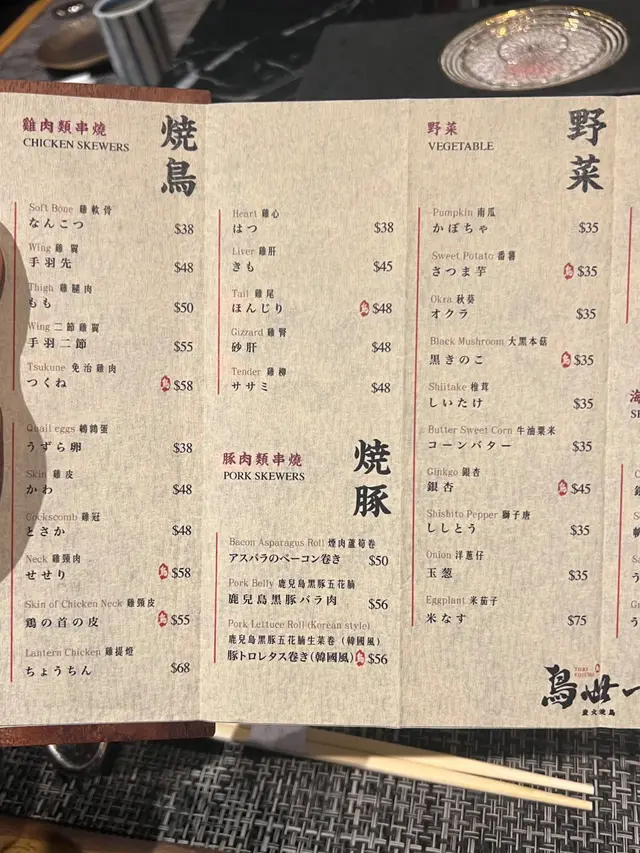 雞肉類串燒
CHICKEN SKEWERS
焼鳥
Soft Bone 雞軟骨
なんこつ $38
Wing 雞翼
手羽先 $48
Thigh 雞腿肉
もも $50
Wing 二節雞翼
手羽二節 $55
Tsukune 免治雞肉
つくね $58
Quail eggs 鵪鶉蛋
うずら卵 $38
Skin 雞皮
かわ $48
Cockscomb 雞冠
とさか $48
Neck 雞頸肉
せせり $58
Skin of Chicken Neck 雞頸皮
鶏の首の皮 $55
Lantern Chicken 雞提燈
ちょうちん $68
Heart 雞心
はつ $38
Liver 雞肝
きも $45
Tail 雞尾
ほんじり $48
Gizzard 雞腎
砂肝 $48
Tender 雞柳
ササミ $48
豚肉類串燒
PORK SKEWERS
焼豚
Bacon Asparagus Roll 煙肉蘆筍卷
アスパラのベーコン巻き $50
Pork Belly 鹿兒島黑豚五花腩
鹿児島黒豚バラ肉 $56
Pork Lettuce Roll (Korean style)
鹿兒島黑豚五花腩生菜卷（韓國風）
豚トロレタス巻き(韓國風) $56
野菜
VEGETABLE
野菜
Pumpkin 南瓜
かぼちゃ $35
Sweet Potato 番薯
さつま芋 $35
Okra 秋葵
オクラ $35
Black Mushroom 大黑本菇
黒きのこ $35
Shiitake 椎茸
しいたけ $35
Butter Sweet Corn 牛油粟米
コーンバター $35
Ginkgo 銀杏
銀杏 $45
Shishito Pepper 獅子唐
ししとう $35
Onion 洋蔥仔
玉葱 $35
Eggplant 米茄子
米なす $75
鳥世一
炭火燒鳥